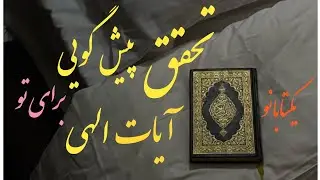 تحقق
پیش گویی
آیات الهی
برای تو
یکتابانو